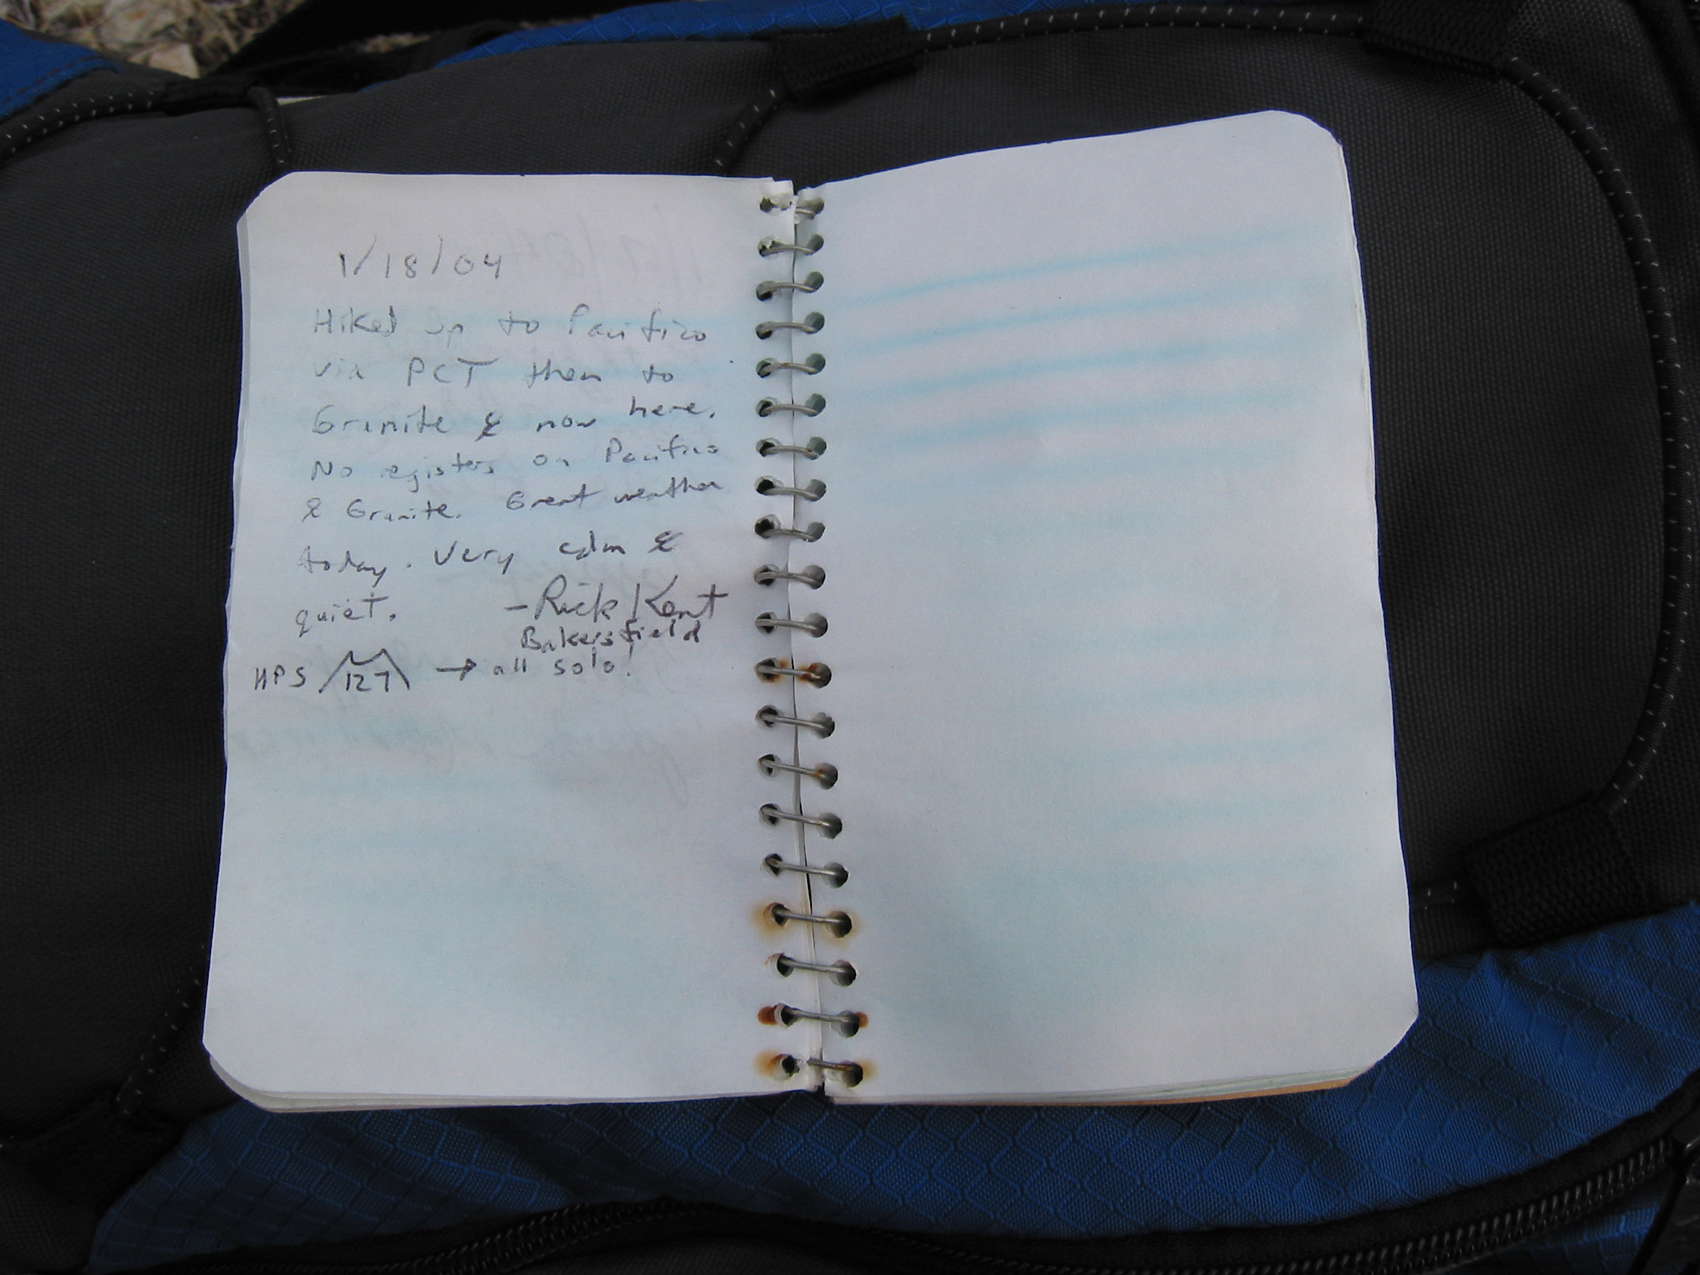 1/18/04
Hiked up to Pacifico
via PCT then to
Granite & now here.
No registers on Pacifico
& Granite. Great weather
today. Very calm &
quiet. - Rick Kent
Bakersfield
HPS 127 → all solo!